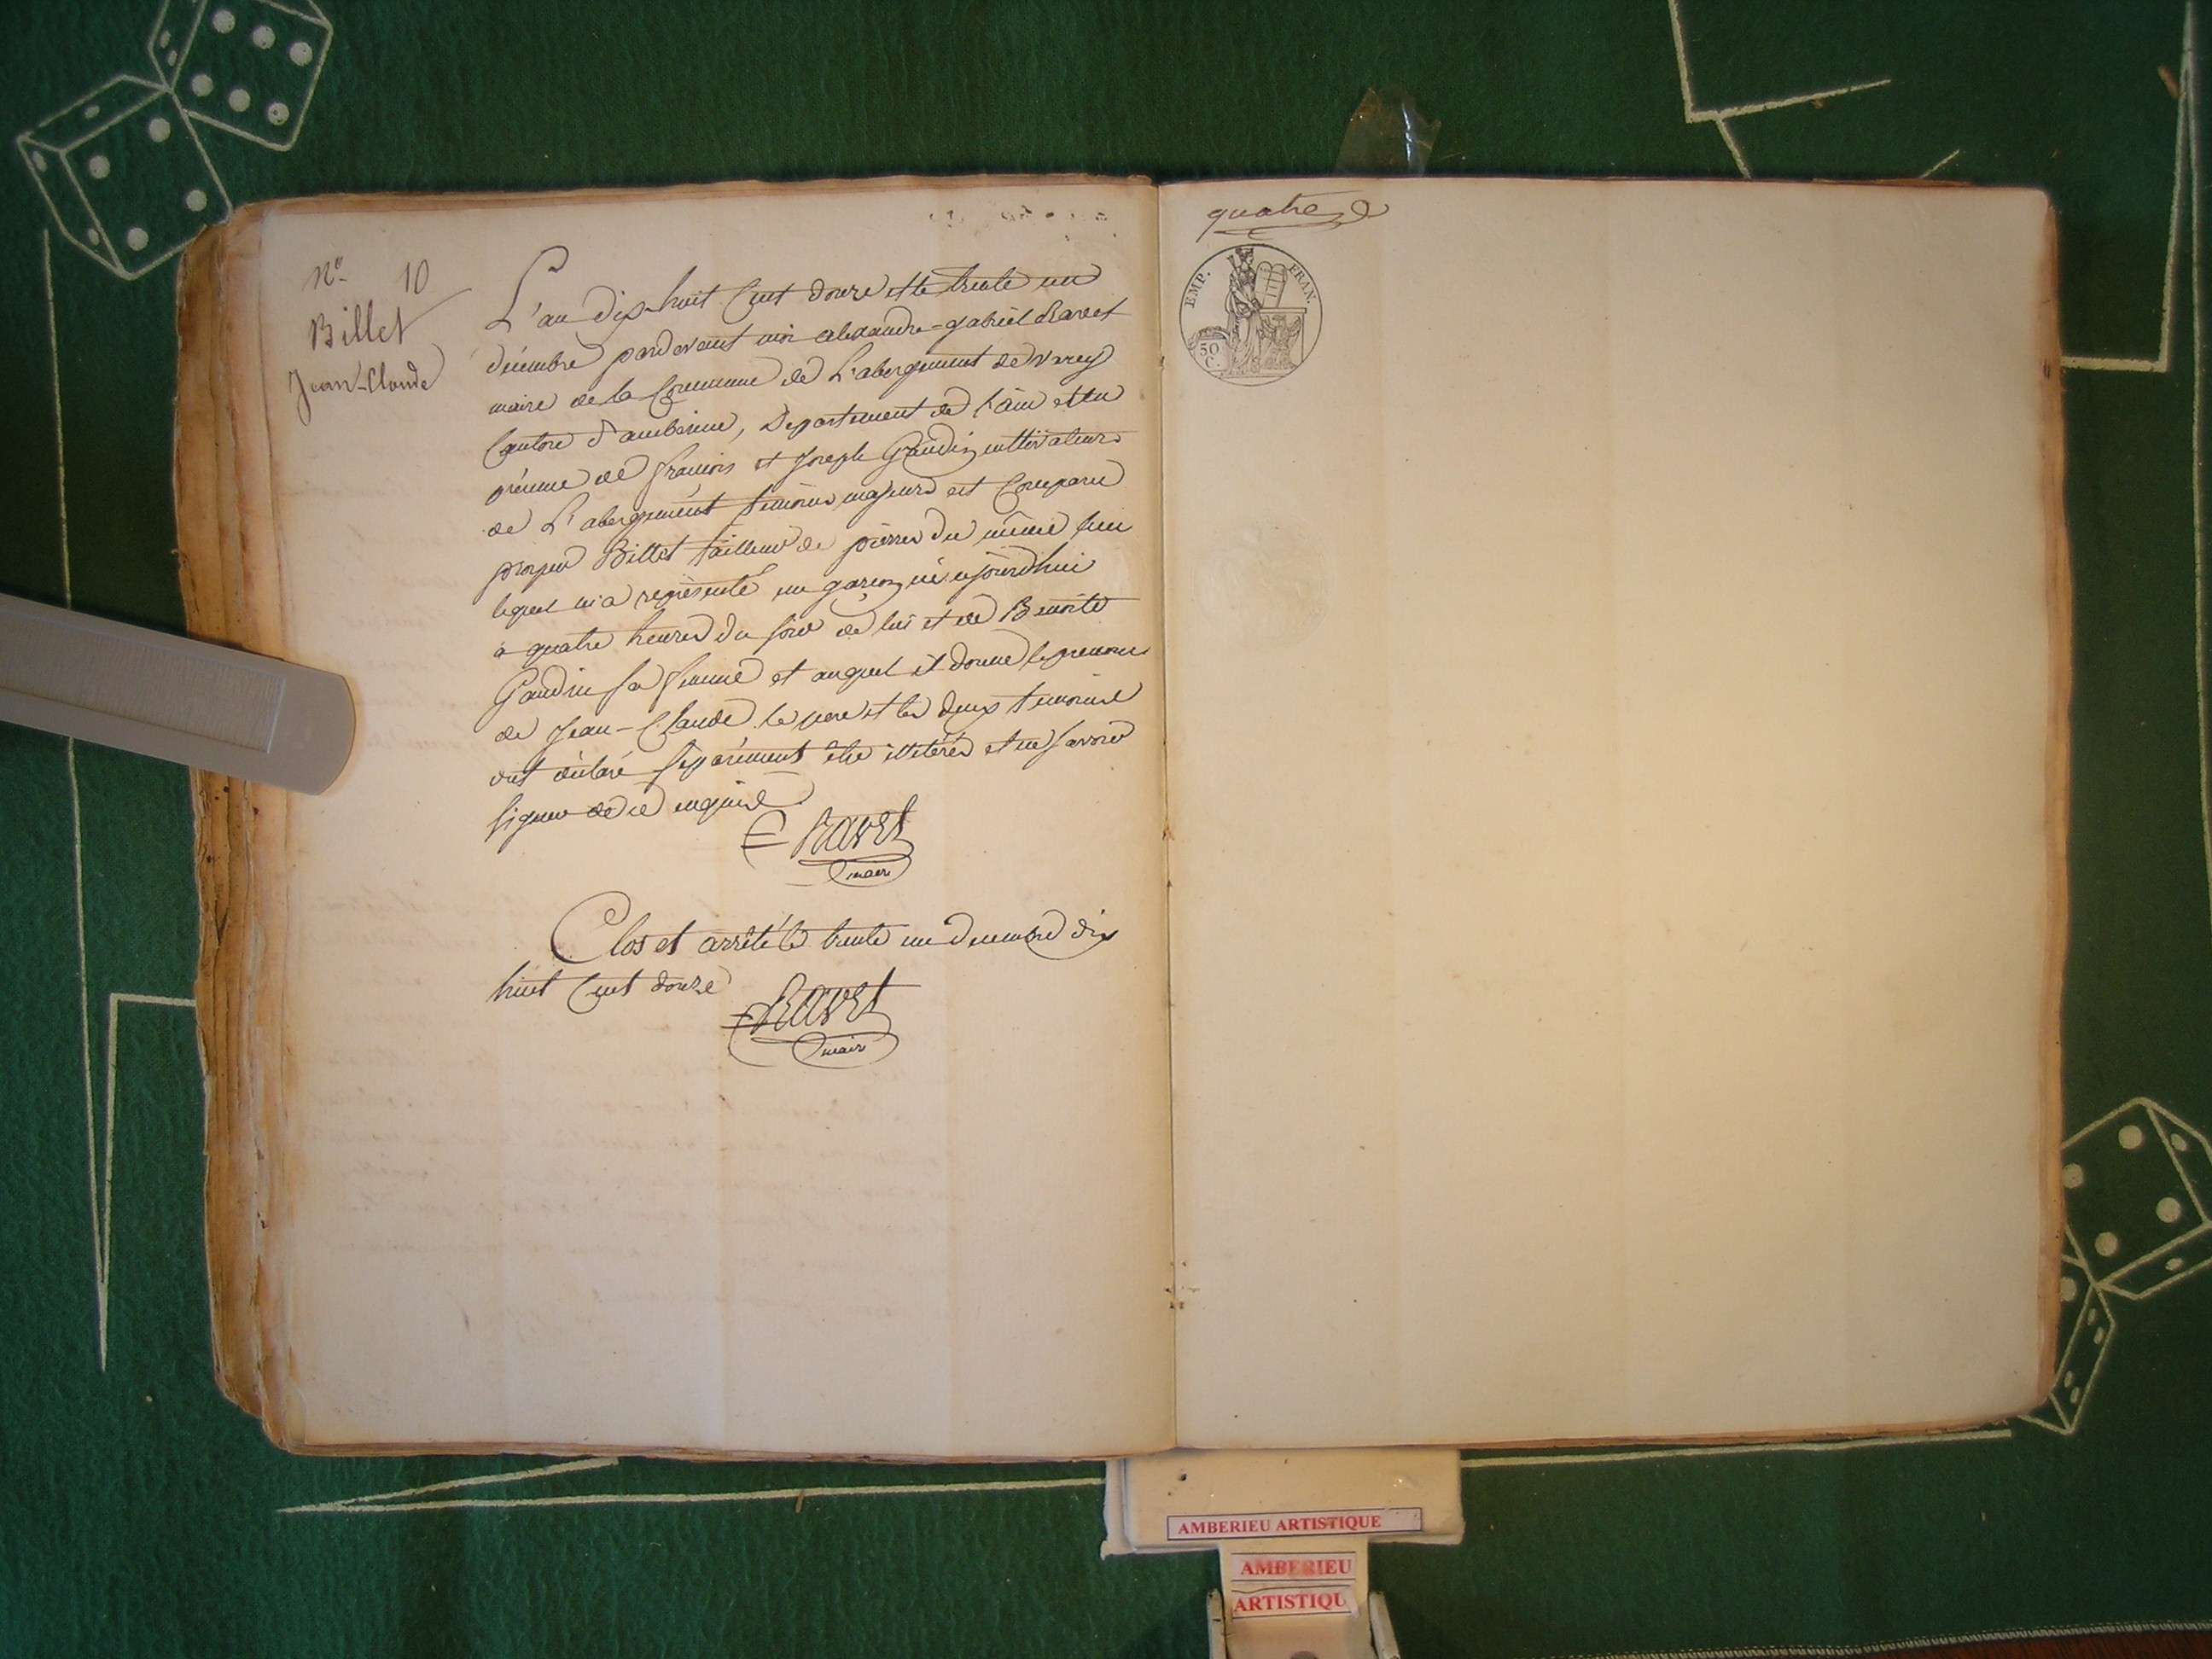 N.º 10
Billet
Jean-Claude
L'an dix-huit Cent douze et le trente un
décembre pardevant moi alexandre-gabriel Ravet
maire de la Commune de L'abergement de varey
Canton d'amberieu, Departement de l'ain et en
présence de françois et Joseph Gaudin cultivateurs
de L'abergement témoins majeurs est Comparu
prosper Billet tailleur de pierres du même lieu
lequel m'a représenté un garçon né aujourdhui
à quatre heures du soir de lui et de Benoite
Gaudin sa femme et auquel il donne le prenom
de Jean-Claude le pere et les deux temoins
ont déclaré séparément être illitérés et ne savoir
signer de ce enquis
Ravet
maire
Clos et arrêté le trente un decembre dix
huit Cent douze
Ravet
maire
quatre
EMP. FRAN.
50
C.
AMBERIEU ARTISTIQUE
AMBERIEU
ARTISTIQU